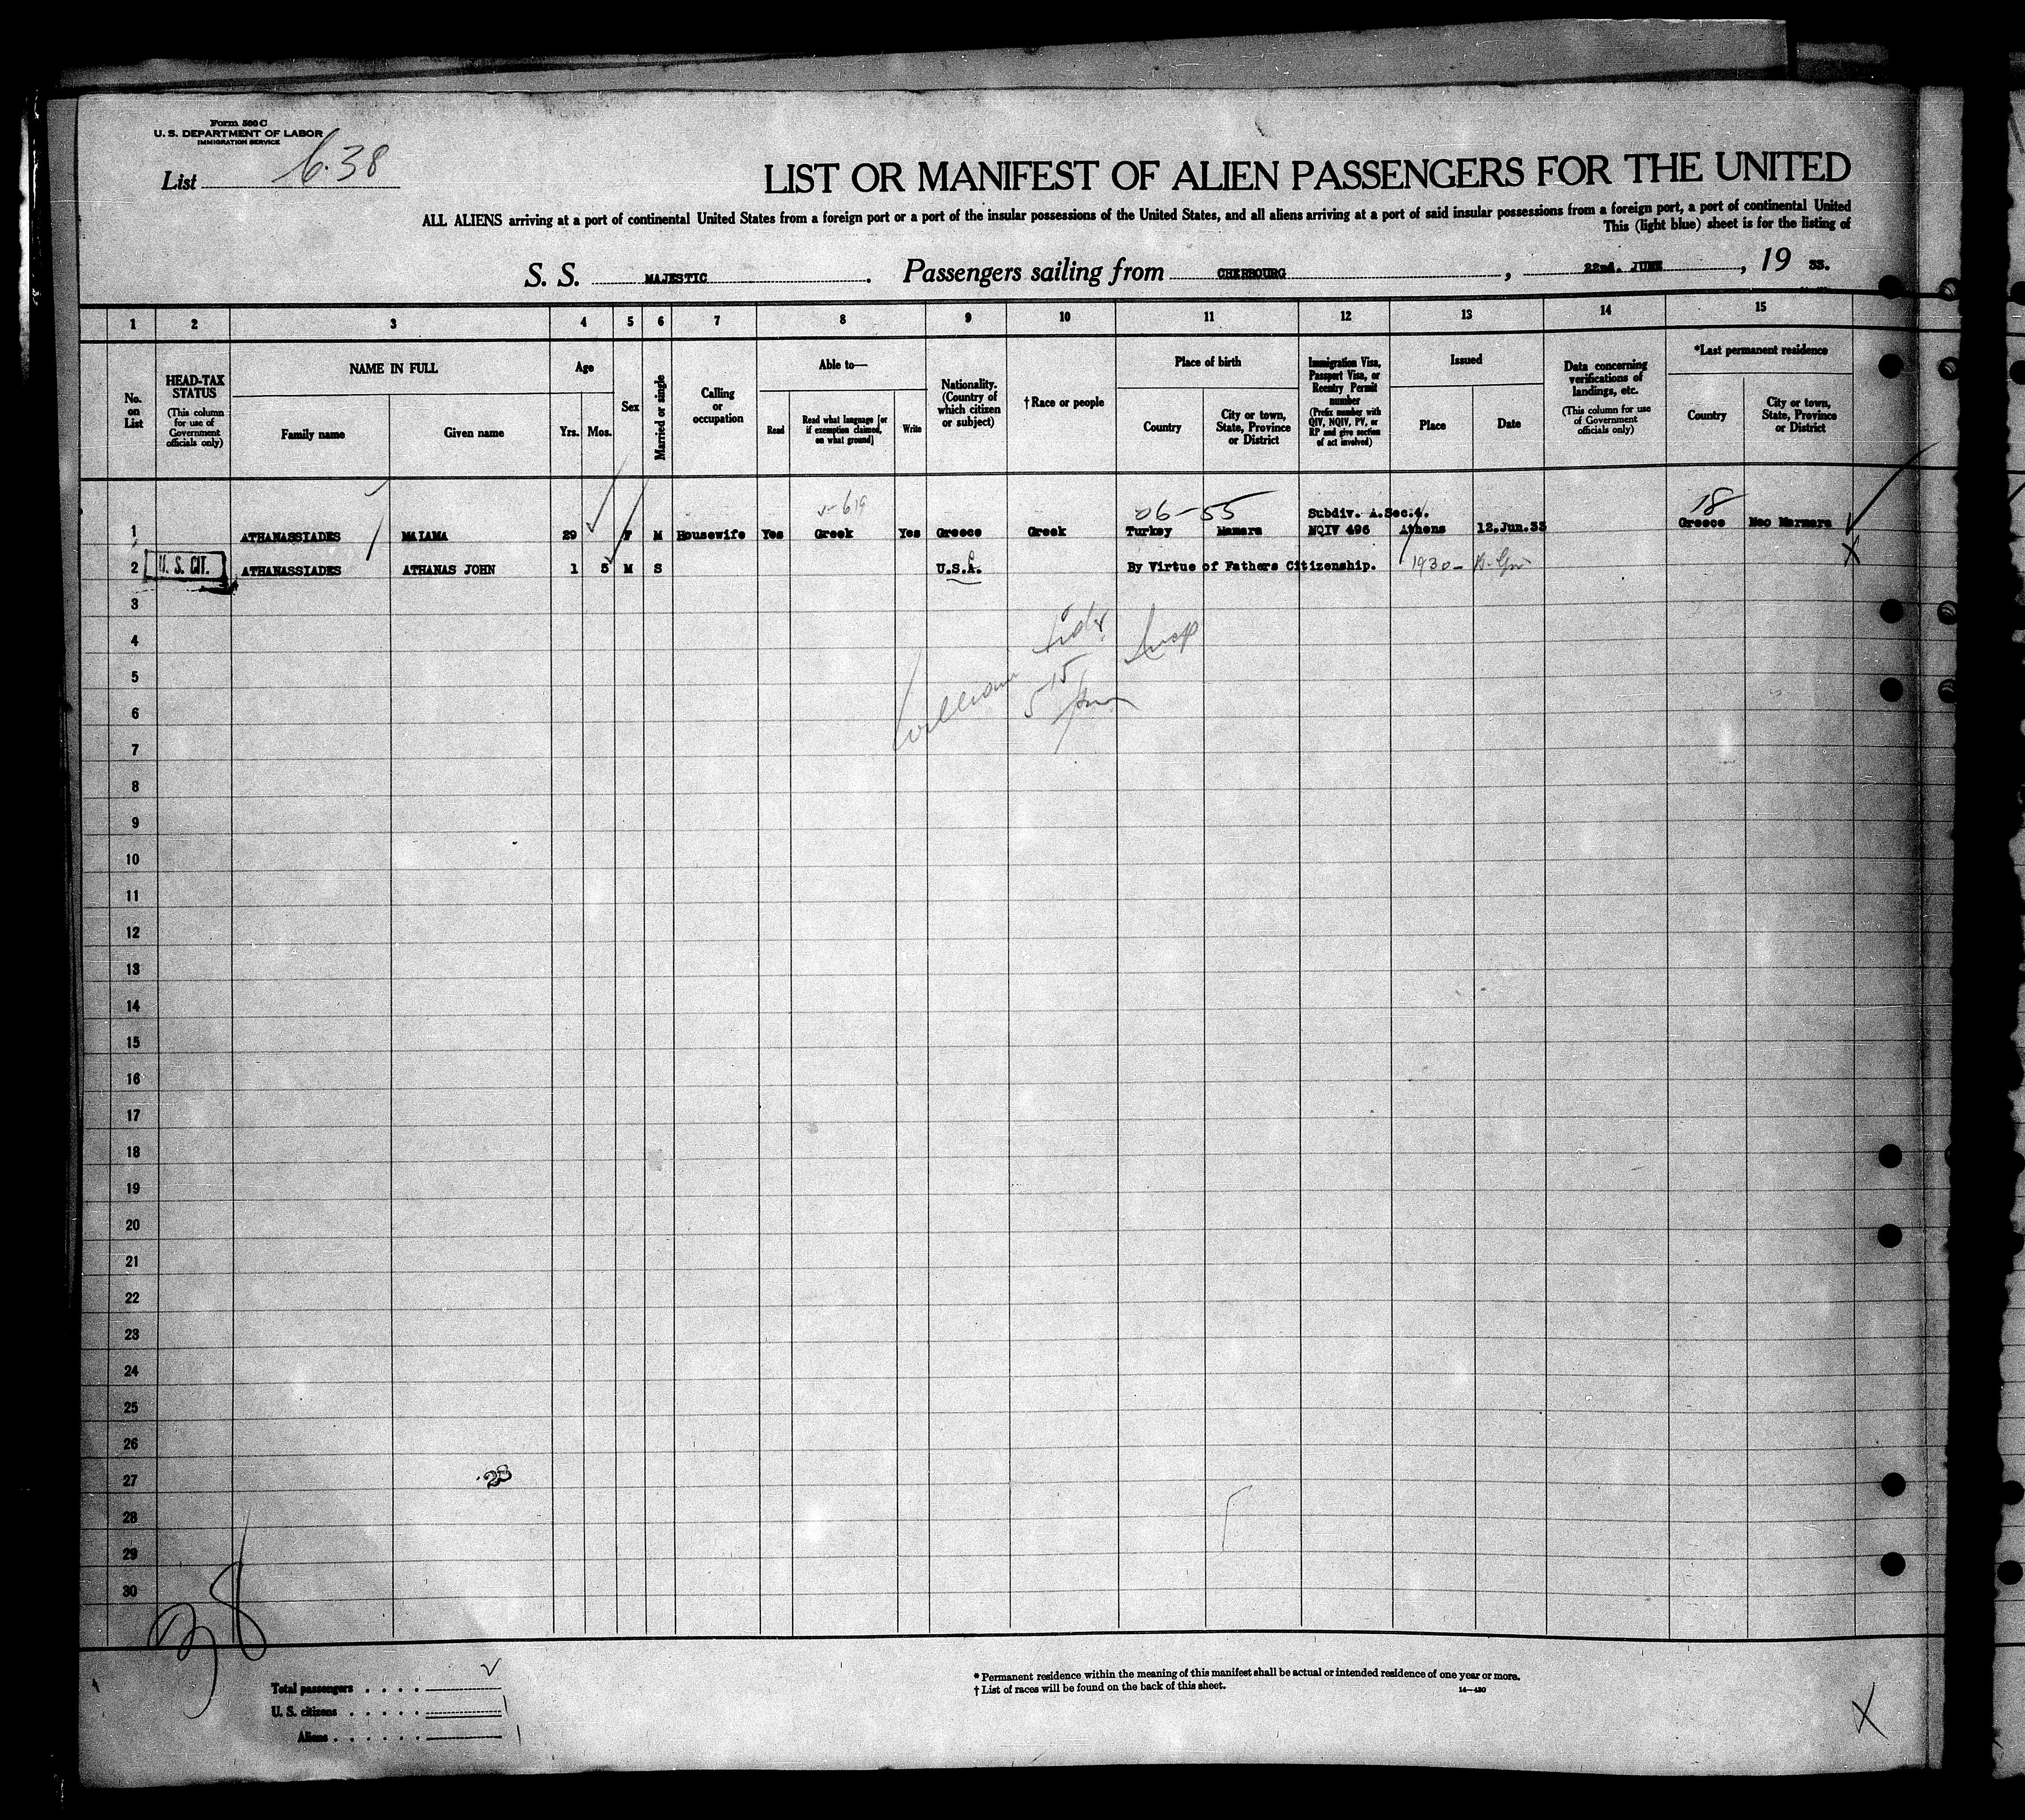 Form 500 C
U. S. DEPARTMENT OF LABOR
IMMIGRATION SERVICE
List 6.38
LIST OR MANIFEST OF ALIEN PASSENGERS FOR THE UNITED
ALL ALIENS arriving at a port of continental United States from a foreign port or a port of the insular possessions of the United States, and all aliens arriving at a port of said insular possessions from a foreign port, a port of continental United
This (light blue) sheet is for the listing of
S. S. MAJESTIC. Passengers sailing from CHERBOURG, 22nd. JUNE, 19 33.
1 2 3 4 5 6 7 8 9 10 11 12 13 14 15
No. on List
HEAD-TAX STATUS (This column for use of Government officials only)
NAME IN FULL
Family name Given name
Age
Yrs. Mos.
Sex
Married or single
Calling or occupation
Able to—
Read
Read what language [or if exemption claimed, on what ground]
Write
Nationality. (Country of which citizen or subject)
† Race or people
Place of birth
Country
City or town, State, Province or District
Immigration Visa, Passport Visa, or Reentry Permit number (Prefix number with QIV, NQIV, PV, or RP and give section of act involved)
Issued
Place Date
Data concerning verifications of landings, etc. (This column for use of Government officials only)
*Last permanent residence
Country
City or town, State, Province or District
06-55 Subdiv. A.Sec.4. 18
1 ATHANASSIADES MAIAMA 29 F M Housewife Yes Greek Yes Greece Greek Turkey Mamara NQIV 496 Athens 12.Jun.33 Greece Neo Marmara
2 U. S. CIT. ATHANASSIADES ATHANAS JOHN 1 5 M S U.S.A. By Virtue of Fathers Citizenship. 1930-
3
4
5
6
William
7
8
9
10
11
12
13
14
15
16
17
18
19
20
21
22
23
24
25
26
27
28
29
30
38
Total passengers
U. S. citizens
Aliens
* Permanent residence within the meaning of this manifest shall be actual or intended residence of one year or more.
† List of races will be found on the back of this sheet.
14—430